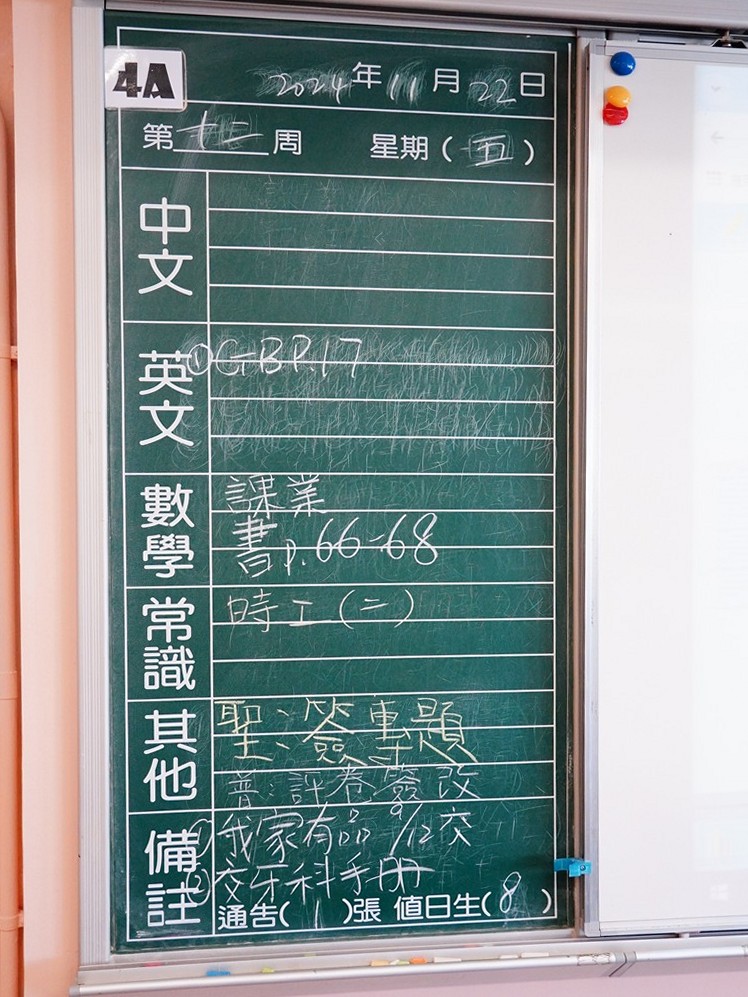 4A
2024年11月22日
第十二周 星期(五)
中文
英文
①GBP.17
數學
課業
書p.66-68
常識
時工(二)
其他
聖:簽專題
普:評卷簽改
備註
①我家有品 9/12交
②交牙科手冊
通告(1)張 值日生(8)